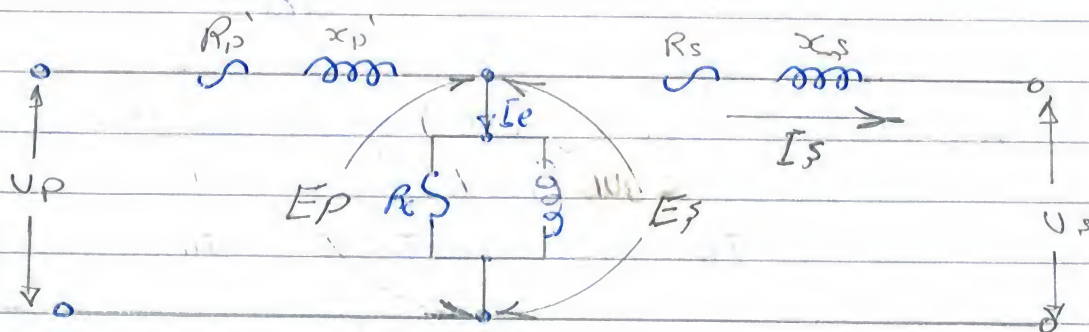 Rp' xp' Rs xs
Ie
Is
Up Ep Rc Es Us